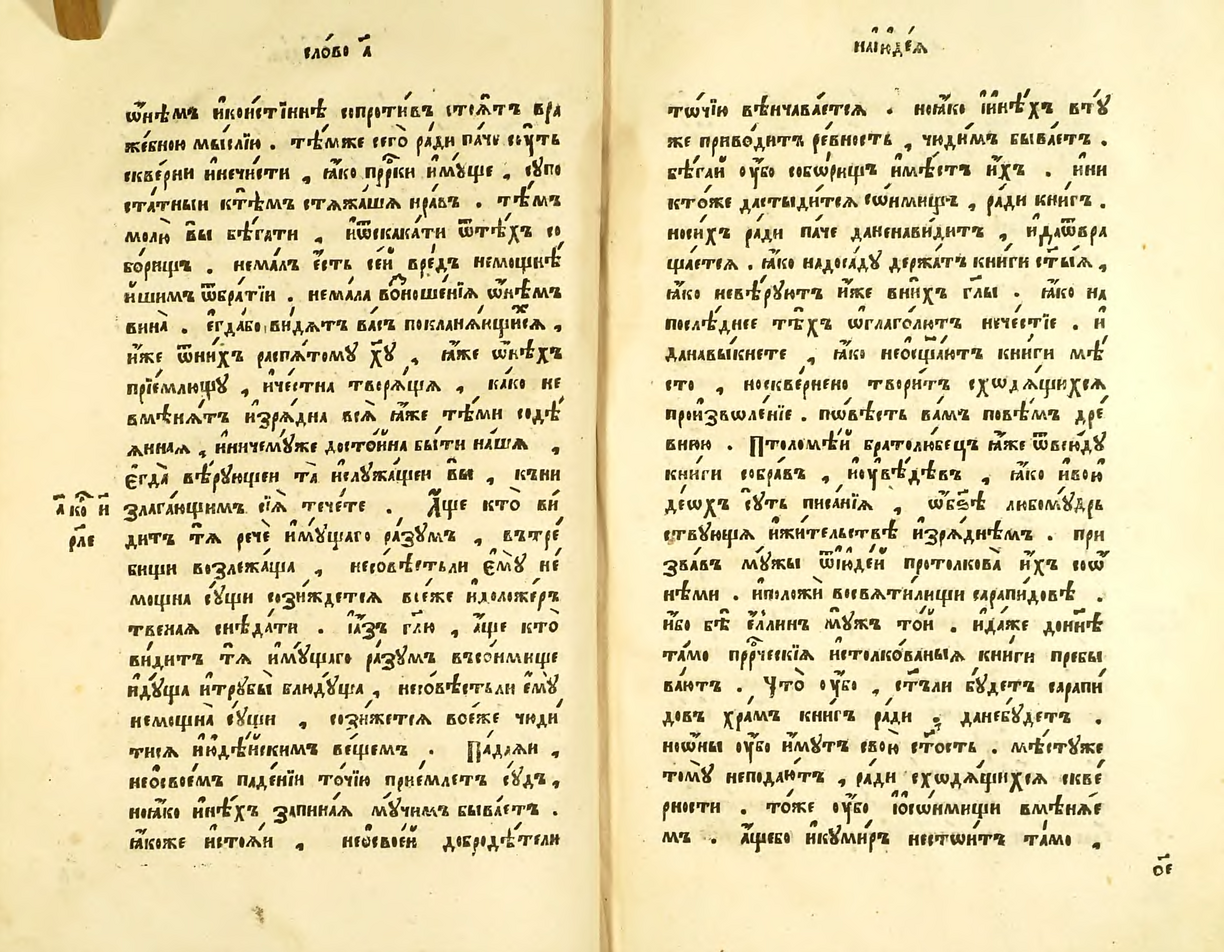 сло́во а҃
ѡ҆не́мъ и҆кои́стіннѣ сопроти́въ стоѧ́тъ вра
же́бною мы́слїю . тѣ́мже сего̀ ра́ди па́че сꙋ́ть
скве́рни и҆нечи́сти , ꙗ҆́ко прⷪ҇рки и҆мꙋ́ще , сꙋпо
ста́тныи ктѣ́мъ стѧжа́шѧ нра́въ . тѣ́мъ
молю̀ вы̀ бѣ́гати , и҆ѿскака́ти ѿтѣ́хъ со
бо́рищъ . нема́лъ є҆́сть се́й вре́дъ немощнѣ́
йшимъ ѿбра́тїи . нема́ла во́ношенїѧ ѡ҆нѣ́мъ
вина̀ . є҆гда́бо ви́дѧтъ ва́съ покланѧ́ющиⷯсѧ ,
и҆́же ѿни́хъ распѧ́томꙋ хⷭ҇ꙋ , ꙗ҆́же ѡ҆нѣ́хъ
прїе́млющꙋ , и҆че́стна творѧ́щѧ , ка́ко не
вмѣнѧ́тъ и҆зрѧ́дна всѧ̀ ꙗ҆́же тѣ́ми содѣ́
ѧннаѧ , и҆ничемꙋ́же досто́йна бы́ти на́шѧ ,
є҆гда̀ вѣ́рꙋющеи та̀ и҆слꙋжа́щеи вы̀ , къни
злага́ющимъ сїѧ̀ тече́те . А҆́ще кто̀ ви́
а҃ ко и
рле
дитъ тѧ̀ речѐ и҆мꙋ́щаго ра́зꙋмъ , вътре́
бищи возлежа́ща , несо́вѣстьли є҆мꙋ̀ не́
мощна сꙋ́щи сози́ждетсѧ все́же и҆доложе́р
твенаѧ снѣ́дати . і҆а҆́зъ гл҃ю , а҆́ще кто̀
ви́дитъ тѧ̀ и҆мꙋ́щаго ра́зꙋмъ въсо́нмище
и҆дꙋ́ща и҆трꙋбы̀ блюдꙋ́ща , несо́вѣстьли є҆мꙋ̀
немощна̀ сꙋ́щи , сози́жетсѧ во́еже чюди́
тисѧ и҆ю҆дѣ́йскимъ ве́щемъ . Па́даѧи ,
нео҆свое́мъ паде́нїи то́чїю прїе́млетъ сꙋ́дъ ,
ноꙗ҆́ко и҆нѣ́хъ запина́ѧ мꙋ́чимъ быва́етъ .
ꙗ҆́коже и҆стоѧ́и , нео҆свое́й добродѣ́тели
наїюде́ѧ
то́чїю вѣнчава́етсѧ . ноꙗ҆́ко і҆и҆нѣ́хъ втꙋ́
же приво́дитъ ре́вность , чю́димъ быва́етъ .
бѣ́гай ᲂу҆́бо собо́рищъ и҆мѣ́стъ и҆́хъ . и҆ни
кто́же дасты́дитсѧ со́нмищъ , ра́ди кни́гъ .
носи́хъ ра́ди па́че даненави́дитъ , и҆даѿвра
ща́етсѧ . ꙗ҆́ко надоса́дꙋ держа́тъ кни́ги ст҃ы́ѧ ,
ꙗ҆́ко невѣ́рꙋютъ и҆́же вни́хъ гл҃ы . ꙗ҆́ко на
послѣ́днее тѣ́хъ ѡ҆глаго́лютъ нече́стїе . и҆
данавы́кнете , ꙗ҆́ко неѡ҆сщ҃а́ютъ кни́ги мѣ́
сто , носкве́рнено твори́тъ сходѧ́щихсѧ
произволе́нїе . по́вѣсть ва́мъ повѣ́мъ дре́
внюю . Птоломѣ́й братолю́бецъ ꙗ҆́же ѿвсю́дꙋ
кни́ги собра́въ , и҆ᲂу҆вѣ́дѣвъ , ꙗ҆́ко и҆вою
де́ѡхъ сꙋ́ть писа́нїѧ , ѡ҆бз҃ѣ любомꙋ́дрь
ствꙋющѧ и҆жи́тельствѣ и҆зрѧ́днѣмъ . при
зва́въ мꙋ́жы ѿїюде́й протолкова̀ и҆́хъ соѡ҆
нѣ́ми . и҆положѝ восвѧти́лищи сарапи́довѣ .
и҆́бо бѣ̀ є҆́ллинъ мꙋ́жъ то́й . и҆да́же дони́нѣ
та́мо прⷪ҇рческїѧ и҆столко́ваныѧ кни́ги пребы
ва́ютъ . Что̀ ᲂу҆́бо , ст҃ъли бꙋ́детъ сарапи́
довъ хра́мъ кни́гъ ра́ди ;данебꙋ́детъ .
ноѡ҆ны̀ ᲂу҆́бо и҆́мꙋтъ свою̀ ст҃ость . мѣ́стꙋже
томꙋ̀ неподаю́тъ , ра́ди сходѧ́щихсѧ скве́
рности . то́же ᲂу҆́бо і҆ѡ҆со́нмищи вмѣнѧ́е
мъ . а҆́щебо и҆кꙋми́ръ нестои́тъ та́мо ,
о҃е